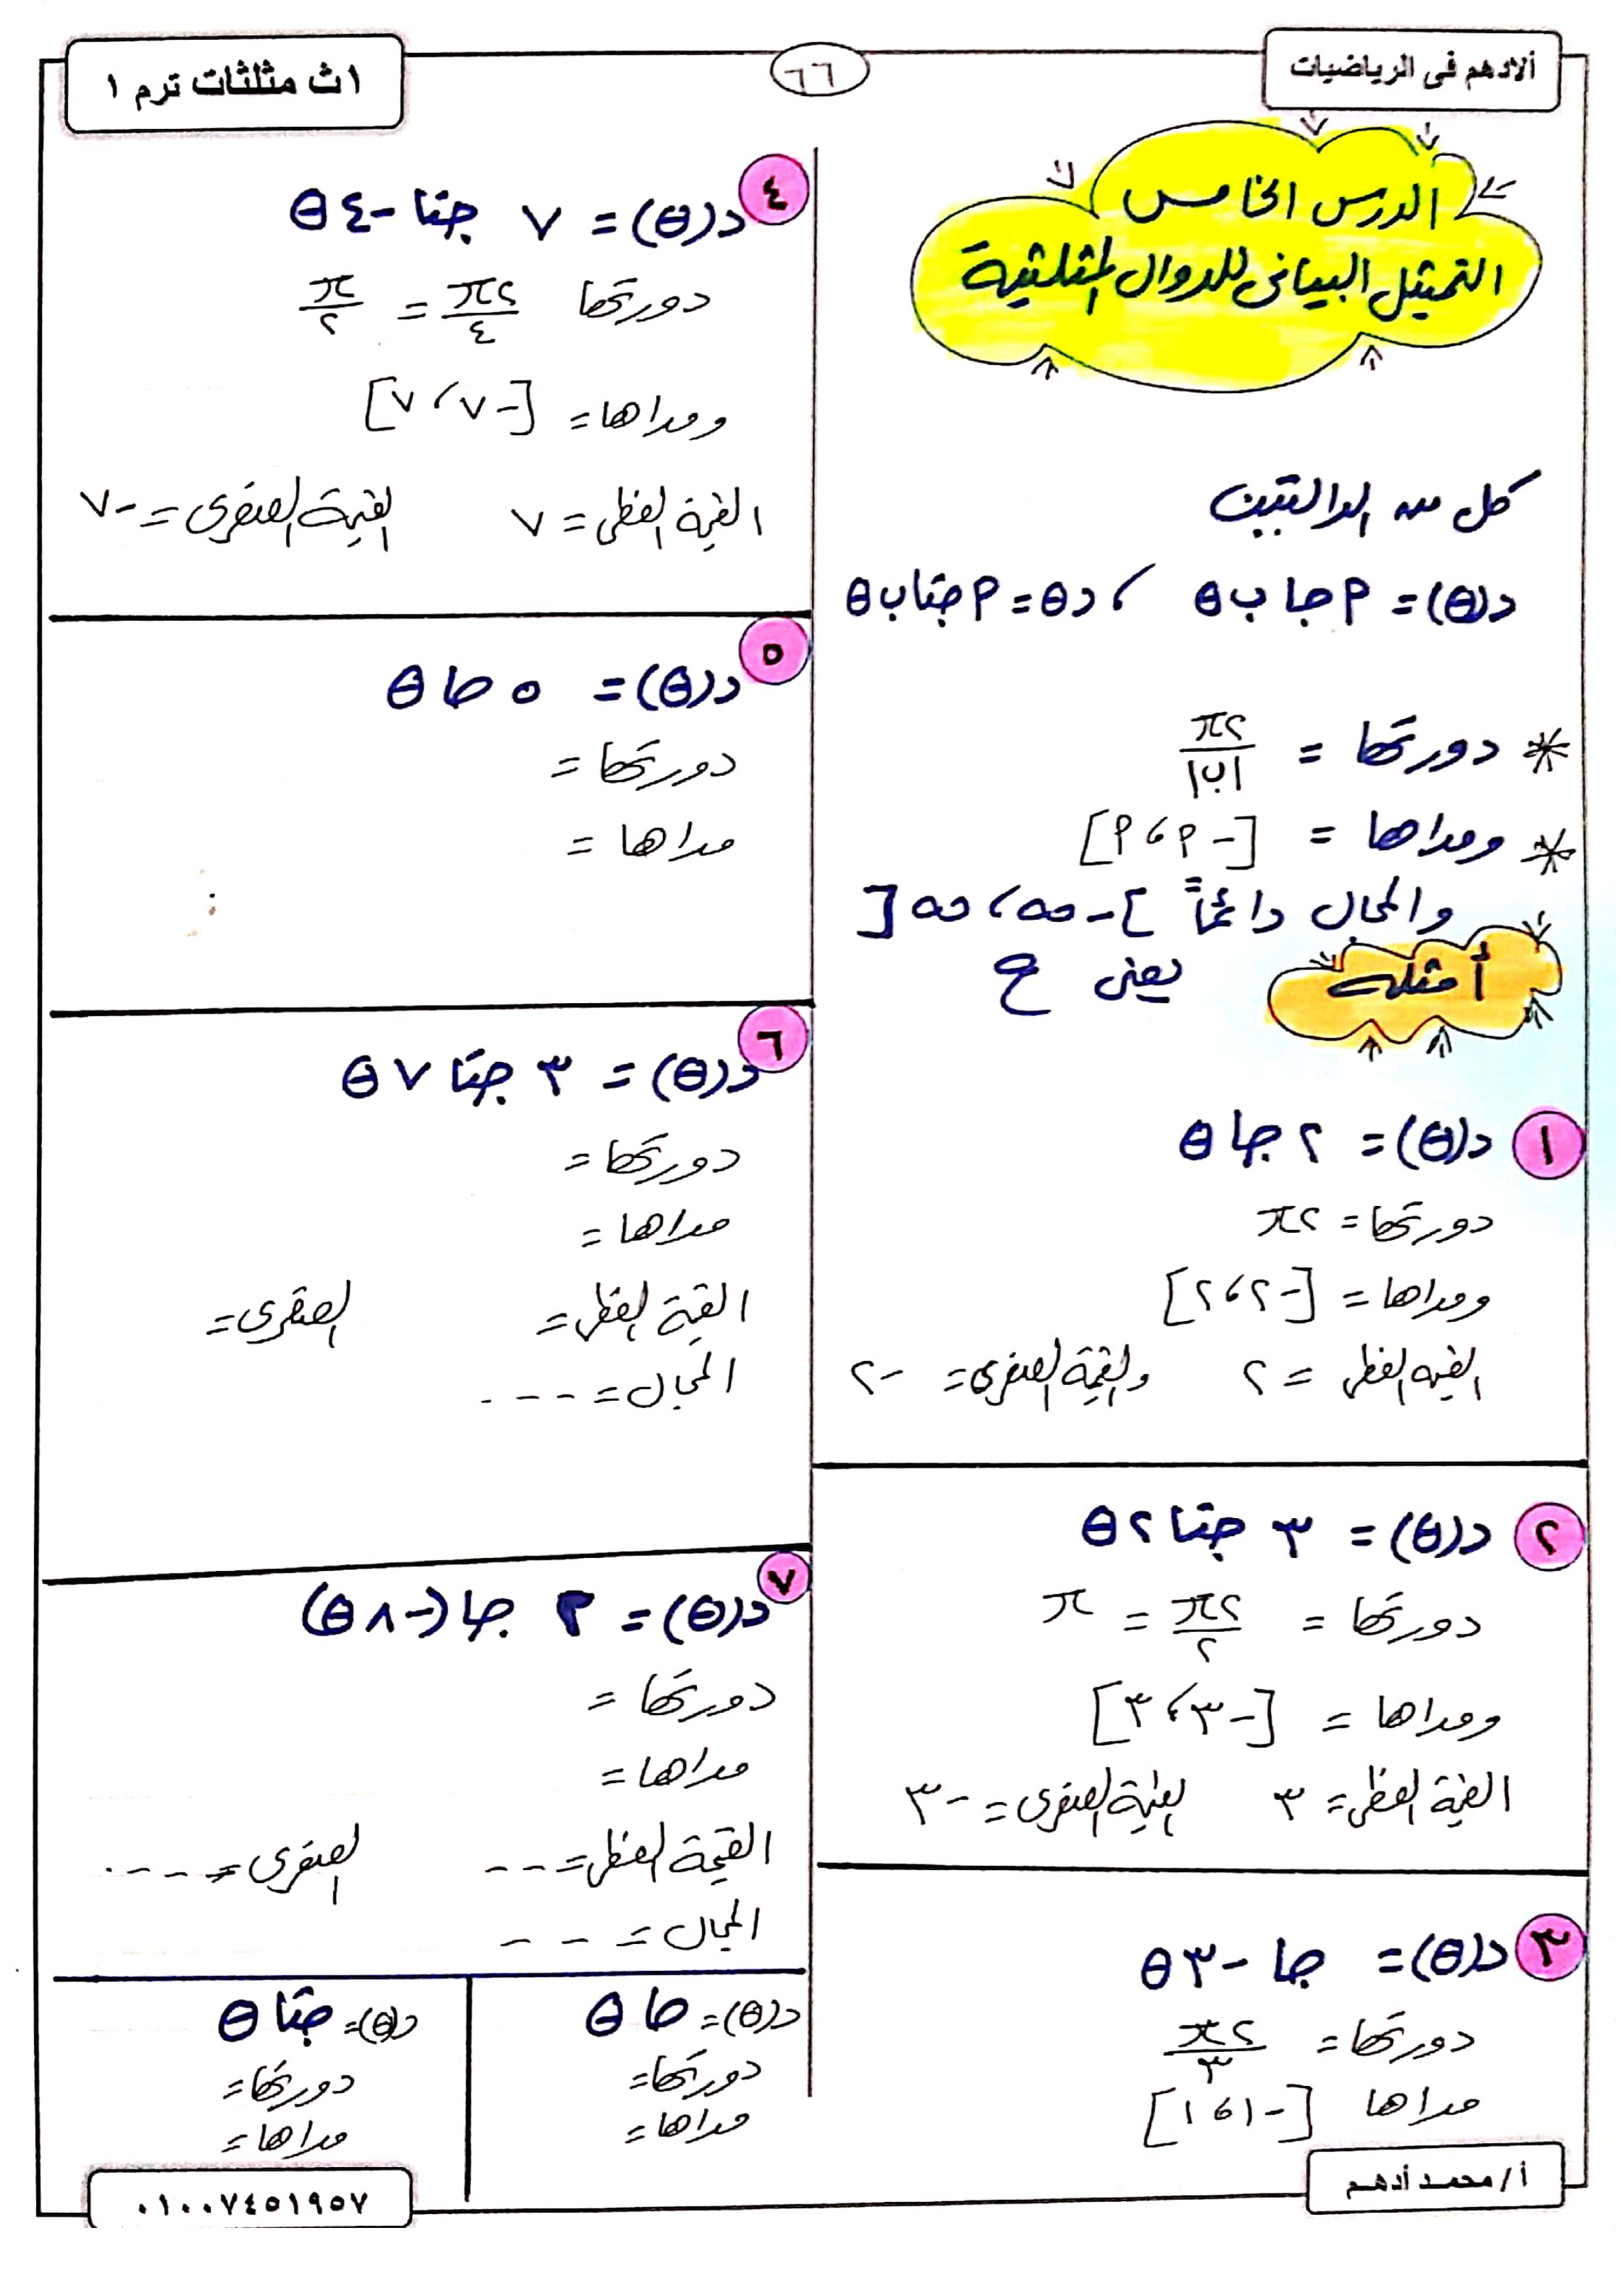 ألادهم فى الرياضيات
٦٦
١ث مثلثات ترم ١
الدرس الخامس
التمثيل البيانى للدوال المثلثية
كل من الدالتين
د(θ) = ٢ جا ب θ ، دθ = ٢ جتا ب θ
* دورتها = ٢π/|ب|
* ومداها = [-٢ ، ٢]
والمجال دائماً ]-∞ ، ∞[
أمثله يعنى ح
١ د(θ) = ٢ جا θ
دورتها = ٢π
ومداها = [-٢ ، ٢]
القيمه العظمى = ٢ والقيمة الصغرى = -٢
٢ د(θ) = ٣ جتا ٢θ
دورتها = ٢π/٢ = π
ومداها = [-٣ ، ٣]
القيمة العظمى = ٣ القيمة الصغرى = -٣
٣ د(θ) = جا -٣θ
دورتها = ٢π/٣
مداها [-١ ، ١]
٤ د(θ) = ٧ جتا -٤θ
دورتها ٢π/٤ = π/٢
ومداها = [-٧ ، ٧]
القيمة العظمى = ٧ القيمة الصغرى = -٧
٥ د(θ) = ٥ حا θ
دورتها =
مداها =
٦ د(θ) = ٣ جتا ٧θ
دورتها =
مداها =
القيمة العظمى = الصغرى =
المجال = - - - .
٧ د(θ) = ٢ جا (-٨θ)
دورتها =
مداها =
القيمة العظمى = - - الصغرى = - - - .
المجال = - -
د(θ) = حا θ
دورتها =
مداها =
د(θ) = جتا θ
دورتها =
مداها =
أ/ محمد أدهم
٠١٠٠٧٤٥١٩٥٧